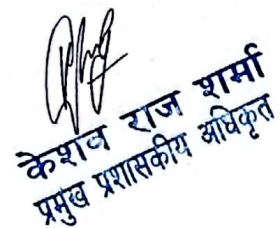 केशव राज शर्मा
प्रमुख प्रशासकीय अधिकृत